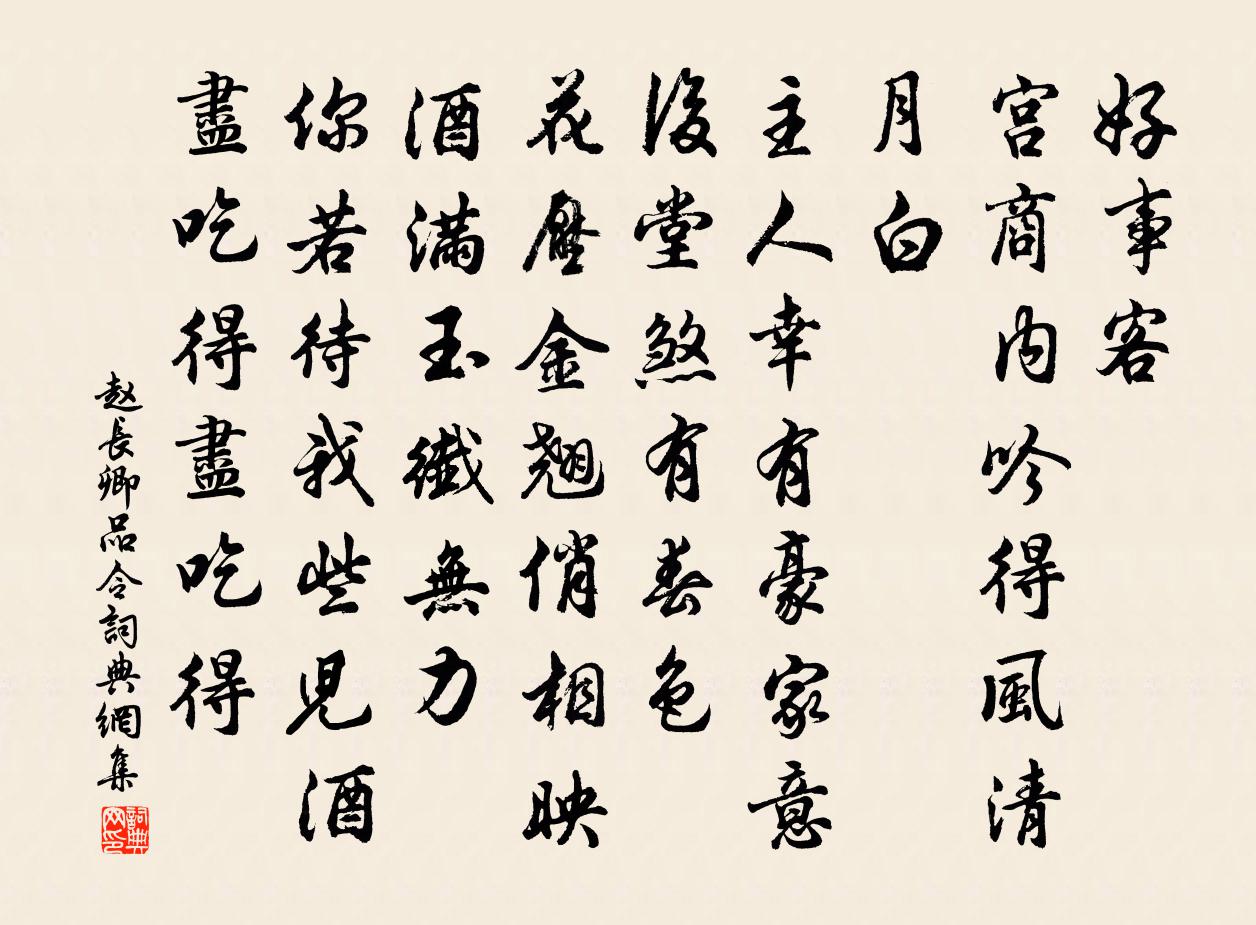 好事客
宮商內吟得風清
月白
主人幸有豪家意
後堂煞有春色
花壓金翹俏相映
酒滿玉纖無力
你若待我些兒酒
盡吃得盡吃得
赵長卿品令詞典網集
詞典
网印